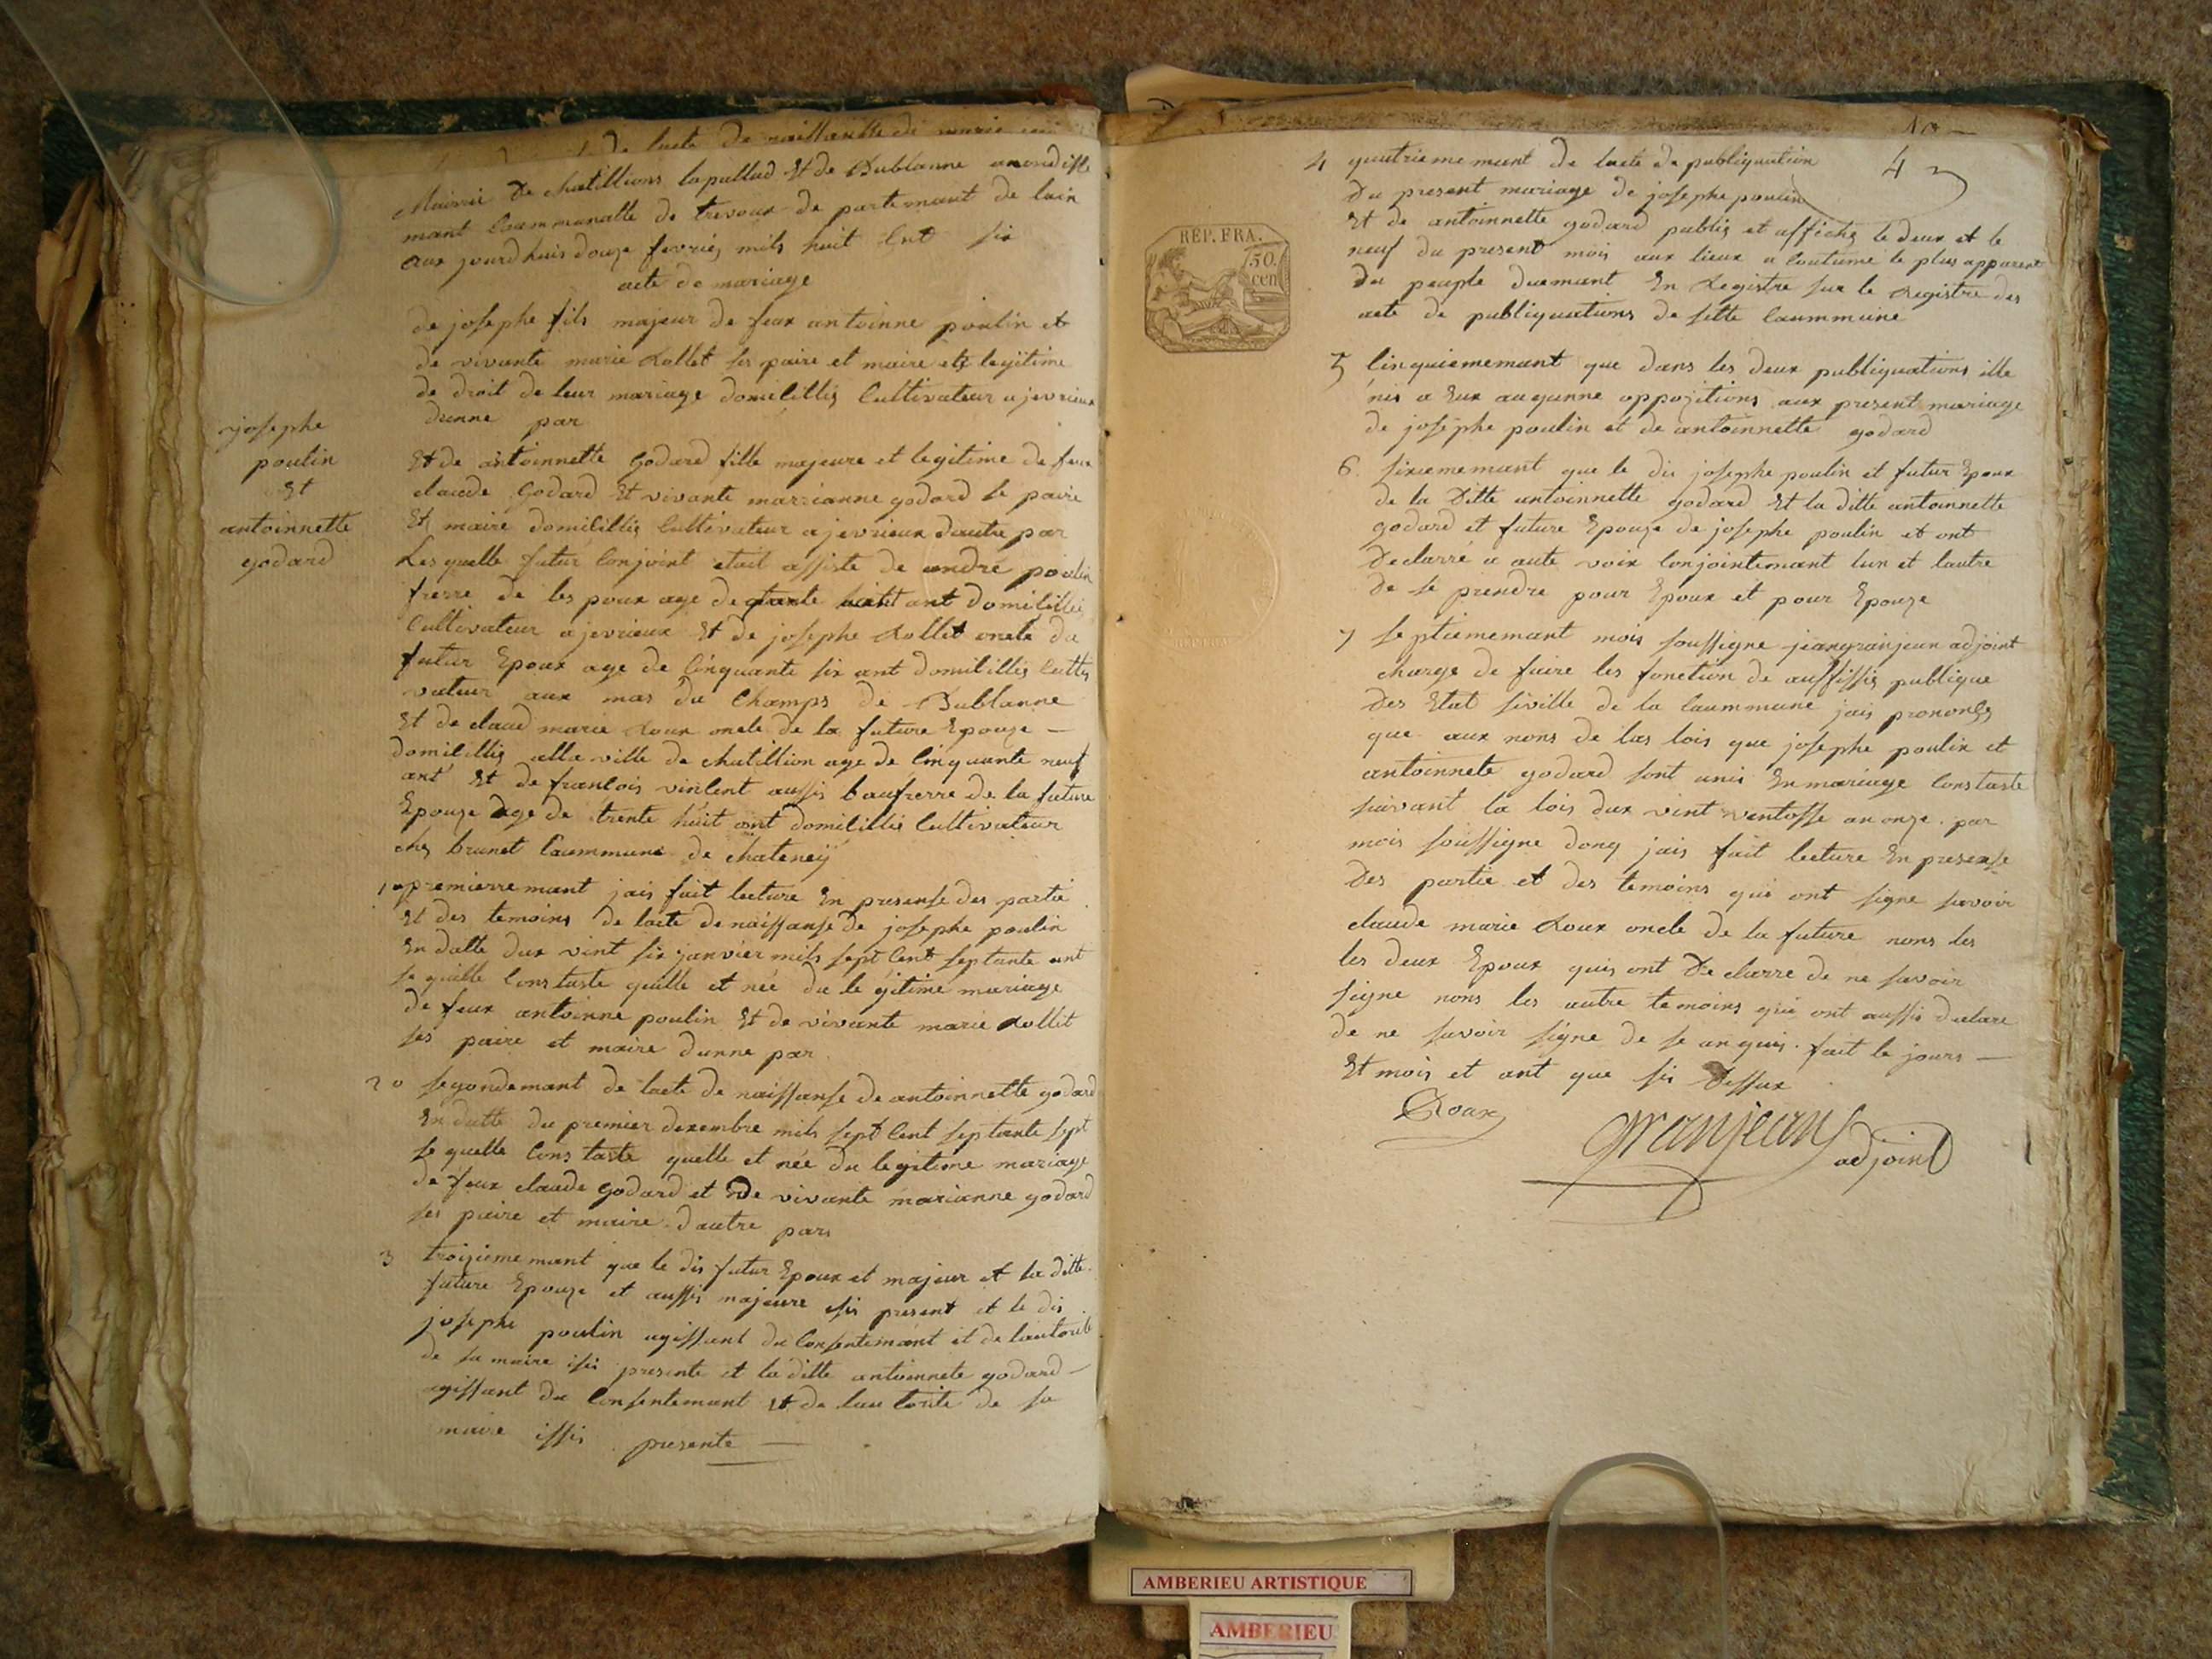 de lacte de naissansse de marie
Mairie De chatillions lapallud Et de Dublanne arondisse
mant Caummunalle de trevoux de partemant de lain
aux jourdhuis douze fevrież mils huit Cent six
acte de mariage
de josephe fils majeur de feux antoinne poulin et
de vivante marie Rollet ses paire et maire et legitime
de droit de leur mariage domicilliés Cultivateur a jevrieux
dunne par
josephe
poulin
Et
antoinnette
godard
Et de antoinnette Godard fille majeure et legitime de feux
claude Godard Et vivante marrianne godard se paire
Et maire domicilliés Cultivateur a jevrieux dautre par
Les quelle futur Conjoint etait assiste de andré poulin
frerre de les poux age de ant domicilliés
Cultivateur a jevrieux Et de josephe Rollet oncle du
futur Epoux age de Cinquante six ant domicilliés Culti
vateur aux mas du Champs de Dublanne
Et de claud marie Roux oncle de la future Epouze —
domicilliés alla ville de chatillion age de Cinquante neuf
ant Et de francois vincent aussi baufrerre de la future
Epouze age de trente huit ant domicilliés Cultivateur
chez brunet Caummune de chateneÿ
1 premierremant jais fait lecture En presense des partie
Et des temoins de lacte de naissanse de josephe poulin
En datte dux vint six janvier mils sept Cent septante ant
se quelle Constaste quille et née du le gitime mariage
de feux antoinne poulin Et de vivante marie Rollit
ses paire et maire dunne par
2 o segondemant de lacte de naissanse de antoinnette godard
En datte du premier dexembre mils sept Cent septante sept
se quelle Cons taste quelle et née du legitime mariage
de feux claude godard et De vivante marianne godard
ses paire et maire dautre par
3 troizieme mant que le dis futur Epoux et majeur et la ditte
future Epouze et aussi majeure isi present et le dis
josephe poulin agissant du Consentemant et de lautorite
de sa maire isi presente et la ditte antoinnete godard —
agissant du Consentemant Et de lau torite de sa
maire issis presente —
4 quatriememant de lacte de publiquation
Du present mariage de josephe poulin
Et de antoinnette godard publis et affiches le deux et le
neuf du present mois aux lieux a Coutume le plus apparent
du peuple duemant En Registre sur le Registre des
acte de publiquations de sette Caummune
43
REP. FRA.
50
cen
5 Cinquiememant que dans les deux publiquations ille
nis a Eux auqunne oppozitions aux present mariage
de josephe poulin et de antoinnette godard
6 sixiememant que le dis josephe poulin et futur Epoux
de la Ditte antoinnette godard Et la ditte antoinnette
godard et future Epouze de josephe poulin et ont
Declarré a aute voix Conjointemant lun et lautre
De se prendre pour Epoux et pour Epouze
7 septiememant mois soussigne jeangranjean adjoint
charge de faire les fonction de auffissis publique
Des Etat siville de la Caummune jais prononcé
que aux nons de las lois que josephe poulin et
antoinnete godard sont unis En mariage Constaste
suivant la lois dux vint ventosse an onze par
mois soussigne donq jais fait lecture En presense
Des partie et des temoins qui ont signe savoir
claude marie Roux oncle de la future nons les
les deux Epoux quis ont De clarre de ne savoir
signe nons les autre temoins qui ont aussi declare
de ne savoir signe de se anquis. fait le jours —
Et mois et ant que sis Dessux
Roux
Granjean
adjoint
AMBERIEU ARTISTIQUE
AMBERIEU